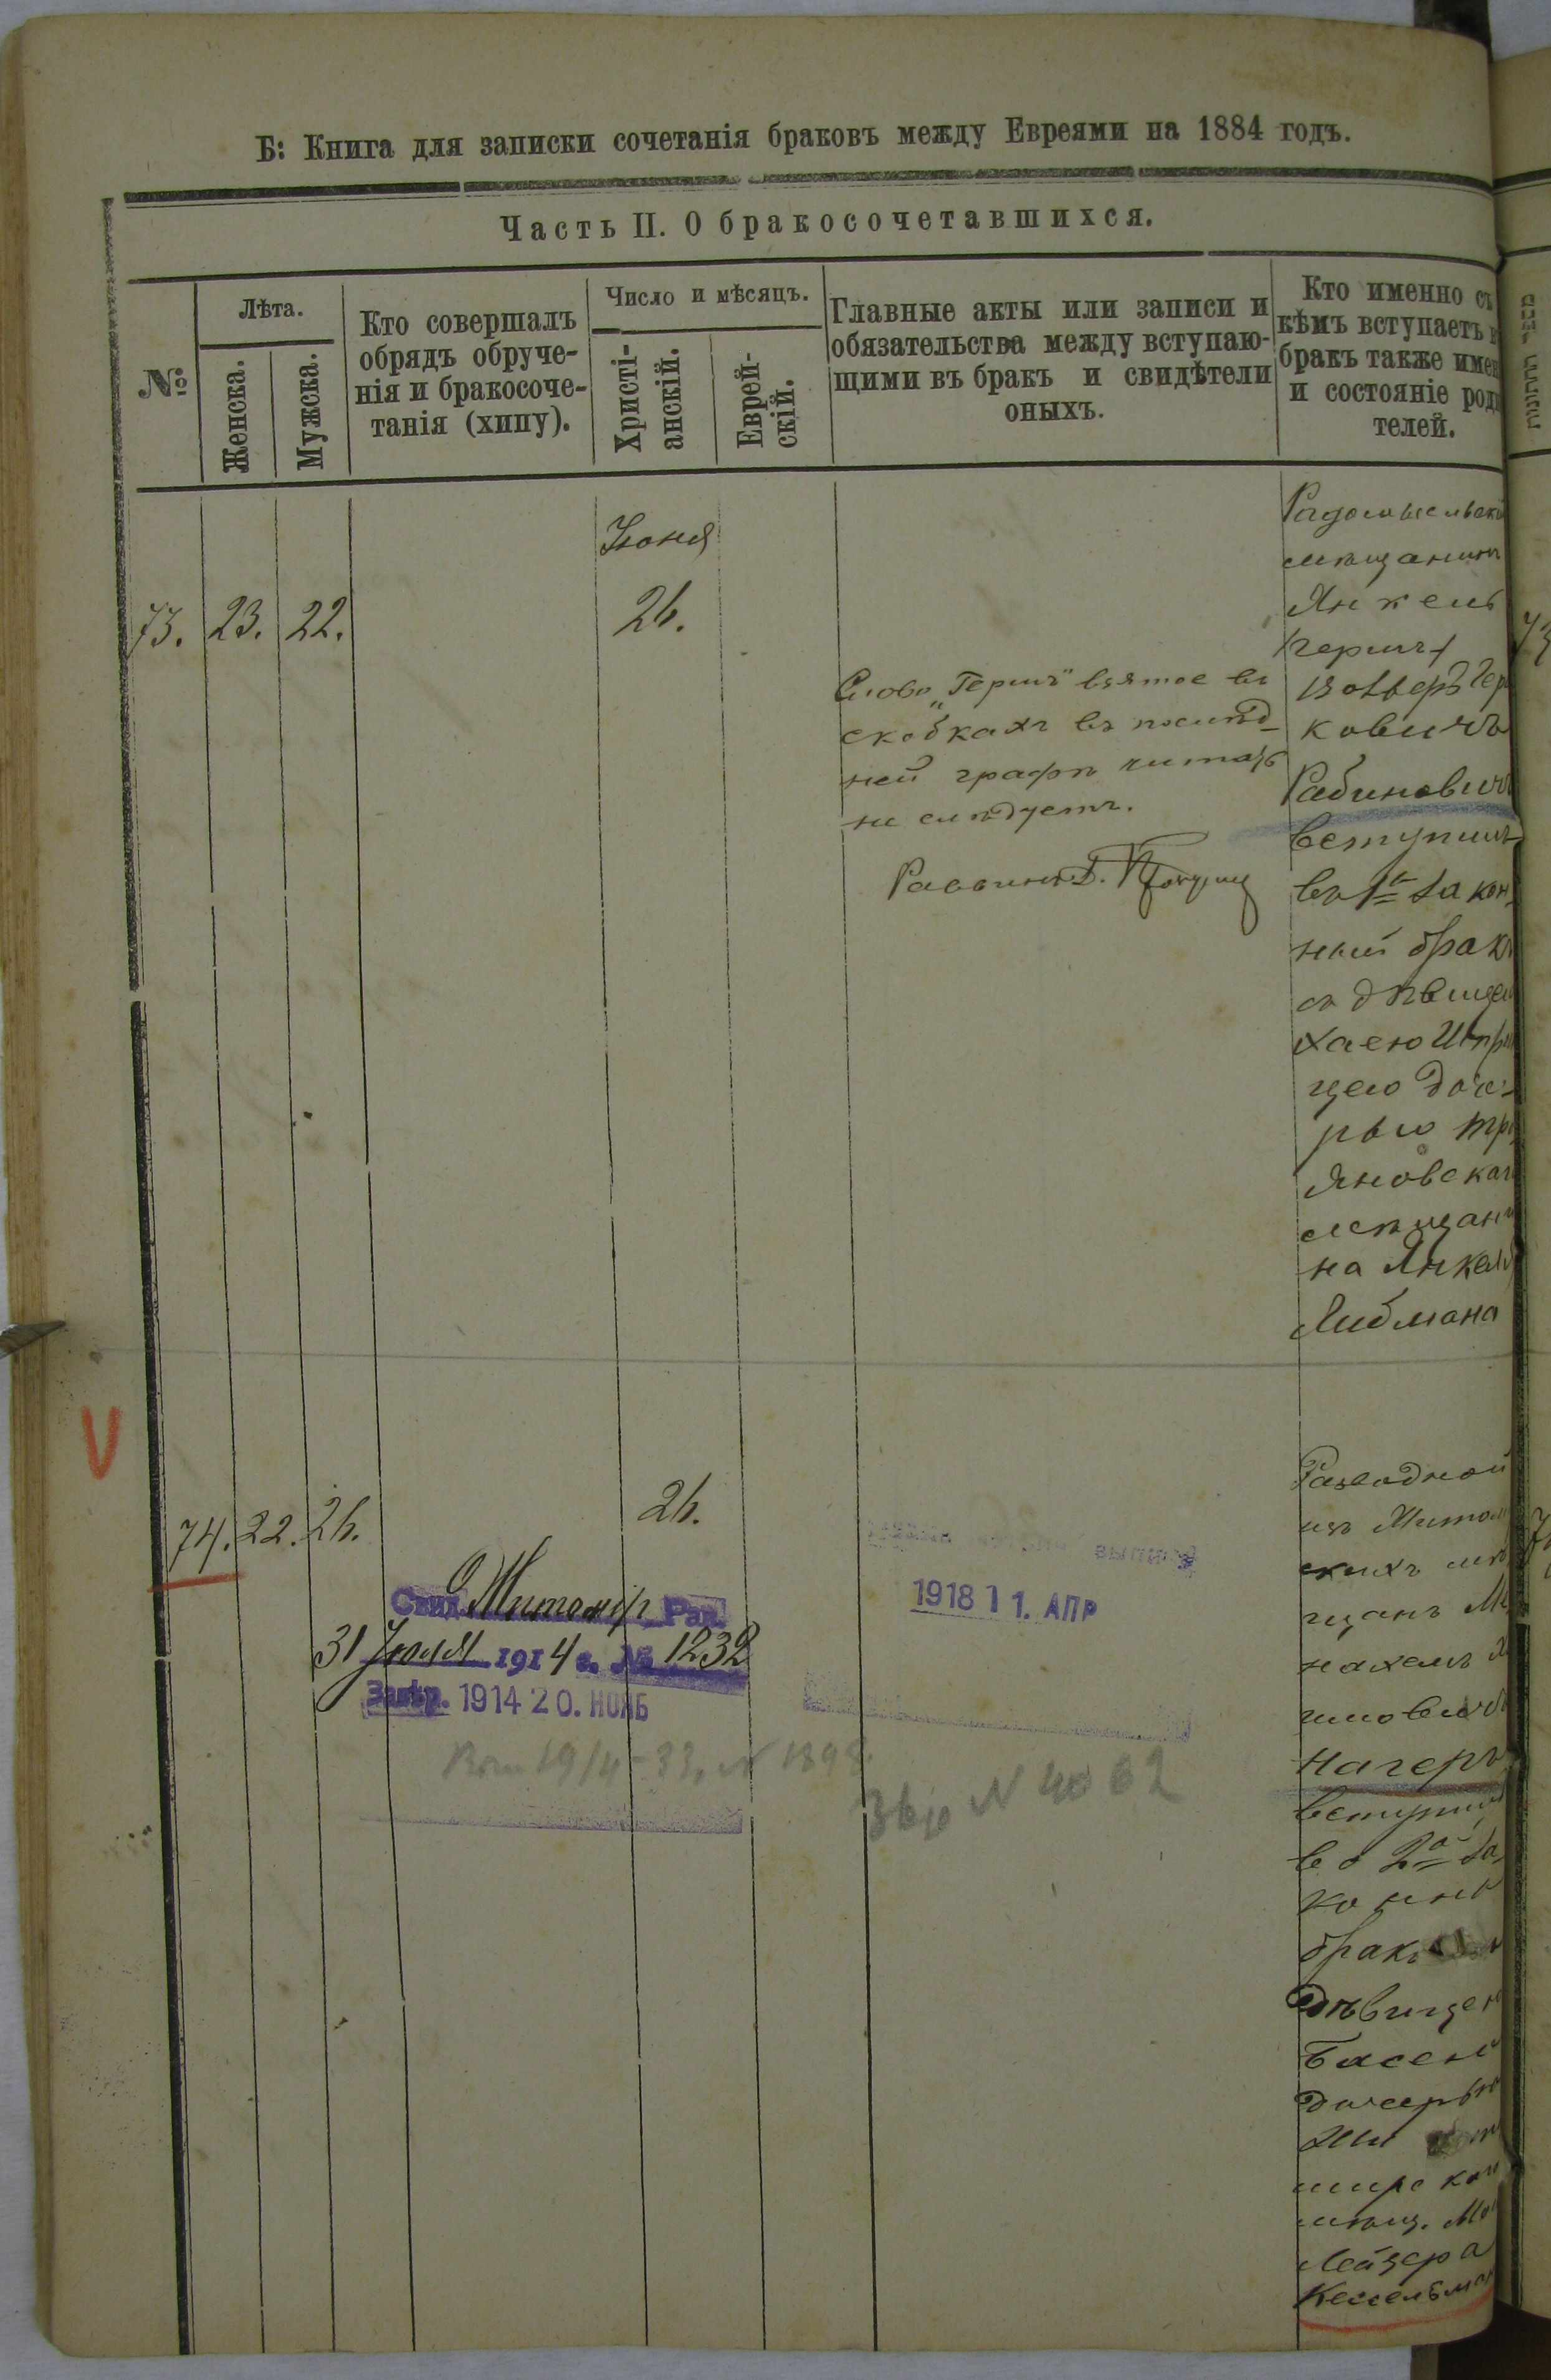 Б: Книга для записки сочетанія браковъ между Евреями на 1884 годъ.
Часть II. О бракосочетавшихся.
№
Лѣта.
Женска.
Мужска.
Кто совершалъ
обрядъ обруче-
нія и бракосоче-
танія (хипу).
Число и мѣсяцъ.
Христі-
анскій.
Еврей-
скій.
Главные акты или записи и
обязательства между вступаю-
щими въ бракъ и свидѣтели
оныхъ.
Кто именно съ
кѣмъ вступаетъ
бракъ также имен
и состояніе роди
телей.
73. 23. 22.
Іюня
26.
Слово „Гершъ" взятое въ
скобкахъ въ послѣд-
ней графѣ читать
не слѣдуетъ.
Раввинъ
Радомысльскій
мѣщанинъ
Янкель
(Гершъ)
Вольфъ Гер
ковичъ
Рабиновичъ
вступилъ
въ 1й закон-
ный бракъ
съ дѣвицею
Хаею
цею доче-
рью Тро
яновскаго
мѣщани
на Янкеля
Либмана
74. 22. 26.
26.
Свид. Житомір. Рав.
31 Іюля 1914 г. № 1232
Завѣр. 1914 20. НОЯБ
1918 1 1. АПР
N 4062
Разводной
изъ Житом
скихъ мѣ
щанъ Ме
нахемъ
шмовичъ
Нагеръ
вступилъ
во 2й за-
конный
бракъ
дѣвицею
Басею
дочерью
Жи
мірскаго
мѣщ. Мо
Лейзера
Кессельман